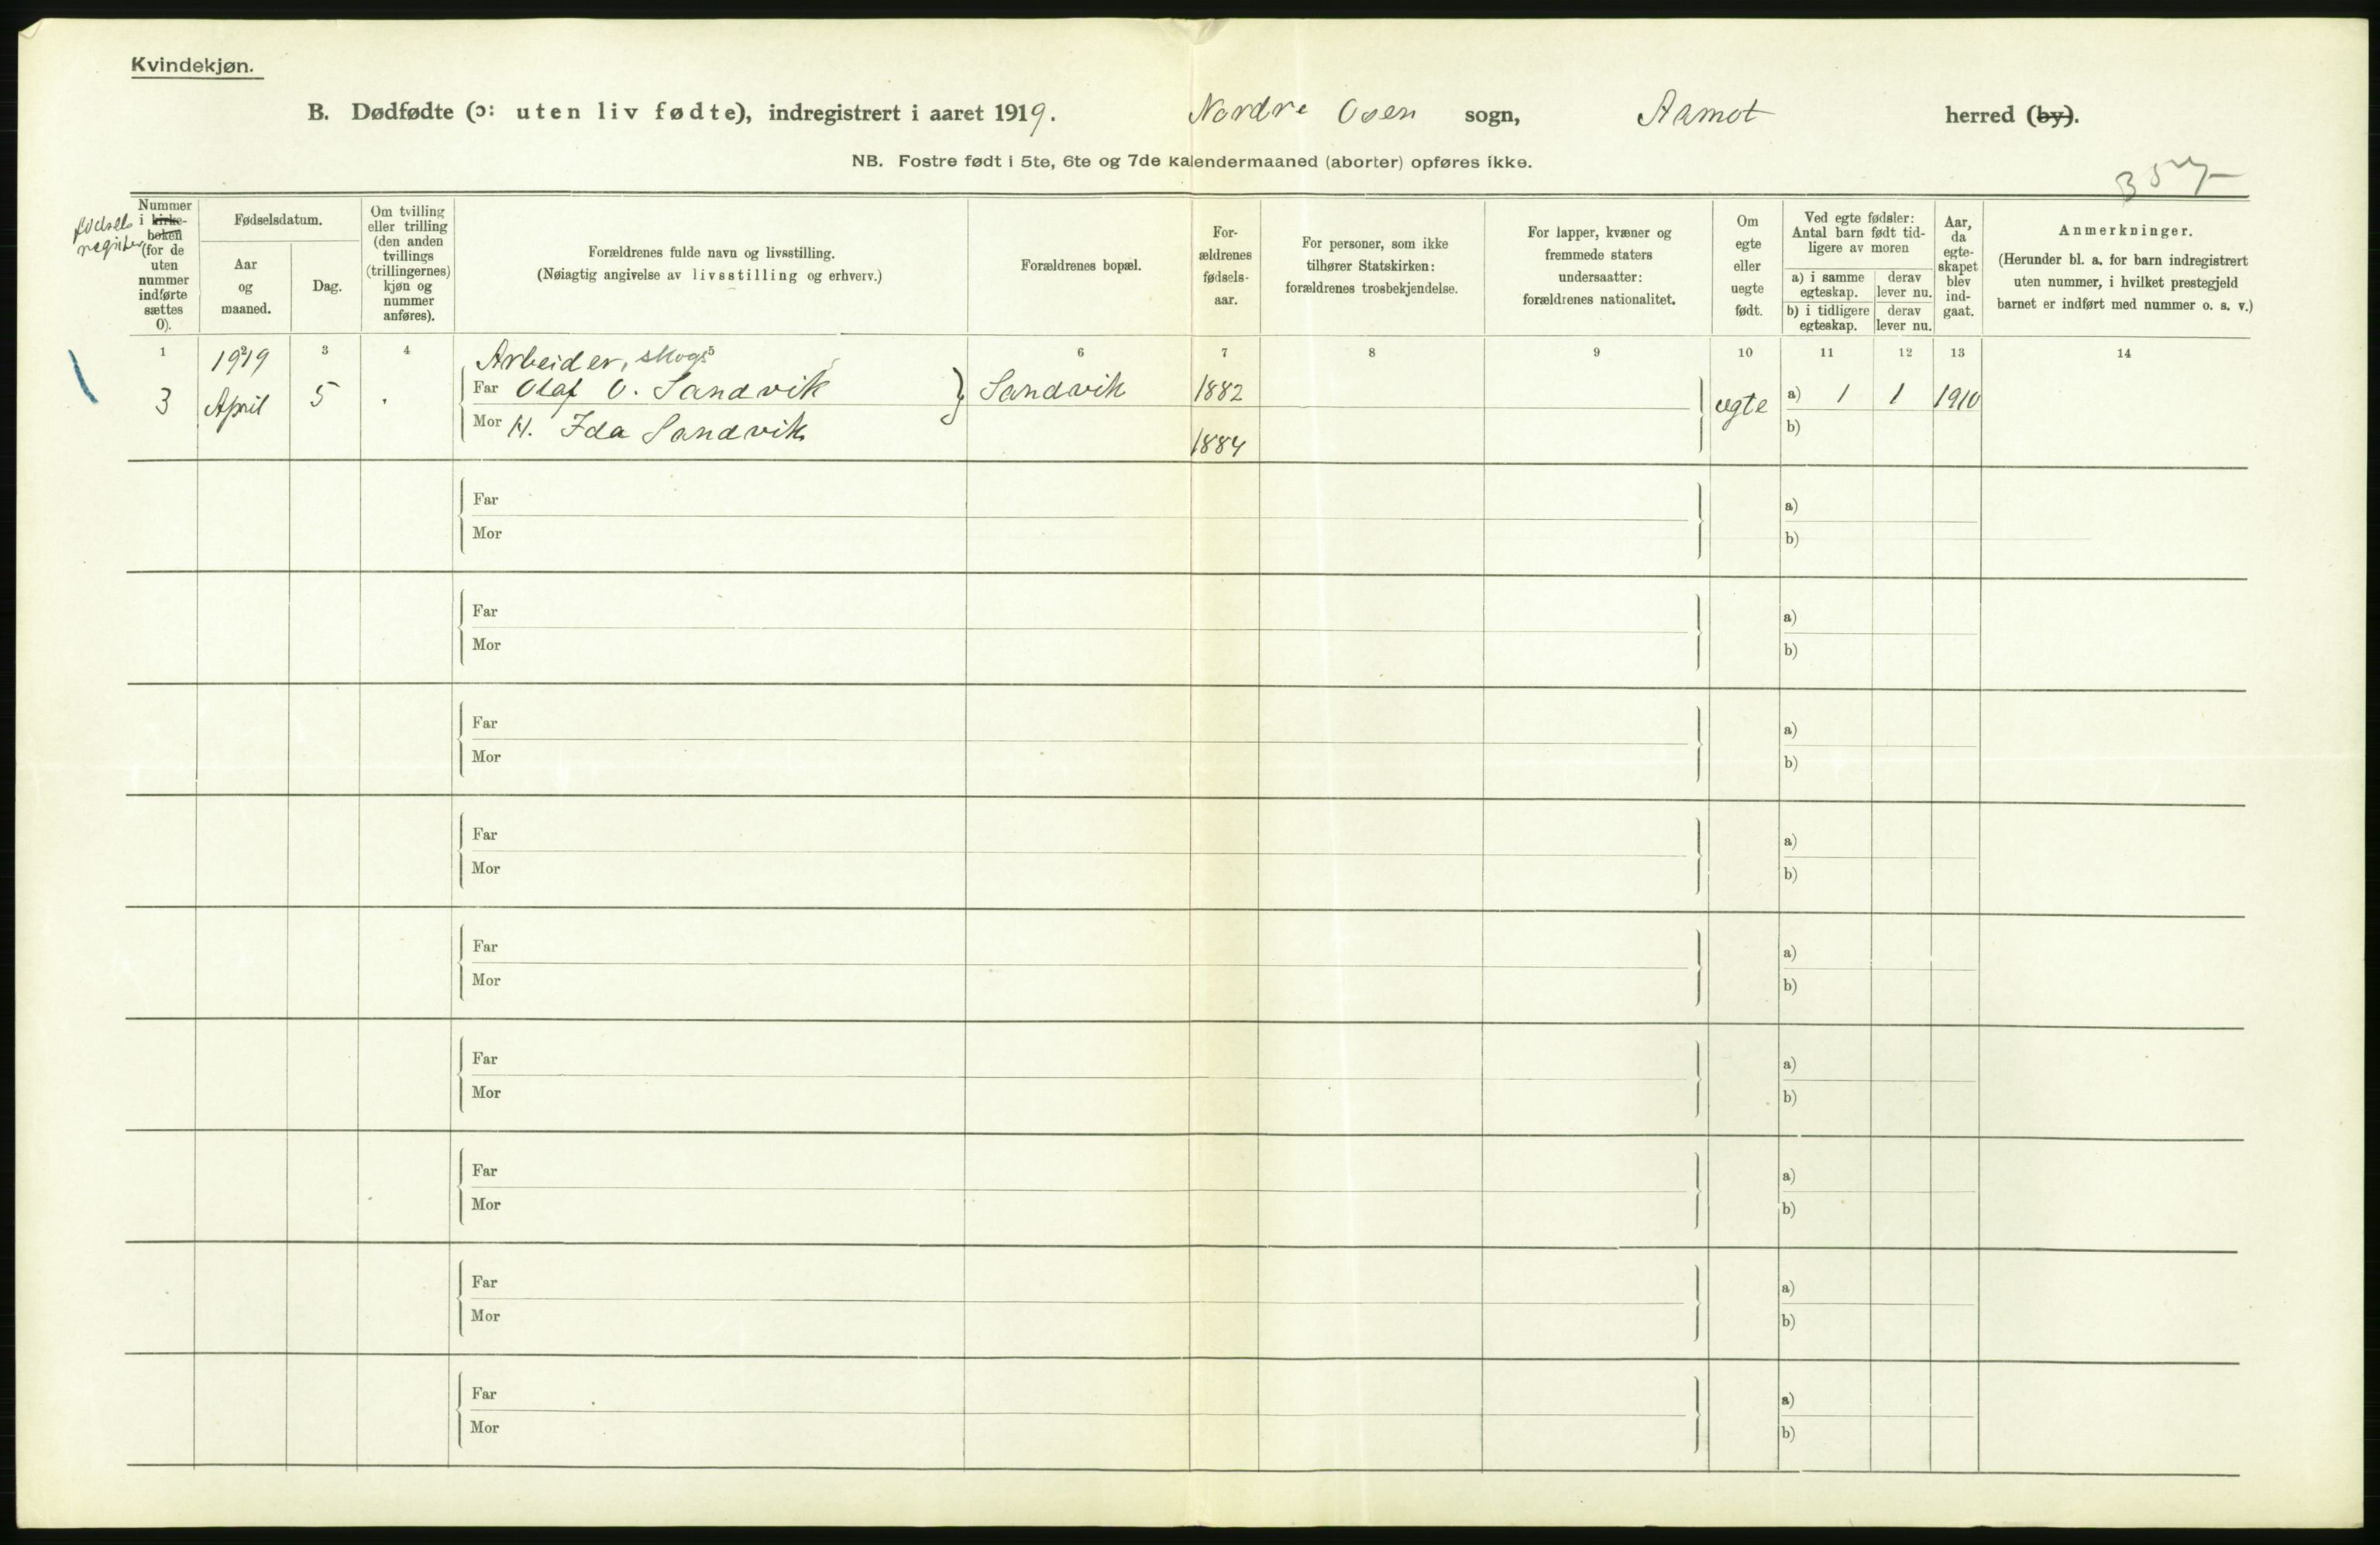 Kvindekjøn.
B. Dødfødte (ɔ: uten liv fødte), indregistrert i aaret 1919. Nordre Osen sogn, Aamot herred (by).
NB. Fostre født i 5te, 6te og 7de kalendermaaned (aborter) opføres ikke.
fødsels
register
Nummer
i kirke-
boken
(for de
uten
nummer
indførte
sættes
0).
Fødselsdatum.
Aar
og
maaned.
Dag.
Om tvilling
eller trilling
(den anden
tvillings
(trillingernes)
kjøn og
nummer
anføres).
Forældrenes fulde navn og livsstilling.
(Nøiagtig angivelse av livsstilling og erhverv.)
Forældrenes bopæl.
For-
ældrenes
fødsels-
aar.
For personer, som ikke
tilhører Statskirken:
forældrenes trosbekjendelse.
For lapper, kvæner og
fremmede staters
undersaatter:
forældrenes nationalitet.
Om
egte
eller
uegte
født.
Ved egte fødsler:
Antal barn født tid-
ligere av moren
a) i samme
egteskap.
derav
lever nu.
b) i tidligere
egteskap.
derav
lever nu.
Aar,
da
egte-
skapet
blev
ind-
gaat.
Anmerkninger.
(Herunder bl. a. for barn indregistrert
uten nummer, i hvilket prestegjeld
barnet er indført med nummer o. s. v.)
1 2 3 4 5 6 7 8 9 10 11 12 13 14
1919 Arbeider, skogs
3 April 5 Far Olaf O. Sandvik Sandvik 1882 egte a) 1 1 1910
Mor H. Ida Sandvik 1884 b)
Far a)
Mor b)
Far a)
Mor b)
Far a)
Mor b)
Far a)
Mor b)
Far a)
Mor b)
Far a)
Mor b)
Far a)
Mor b)
Far a)
Mor b)
Far a)
Mor b)